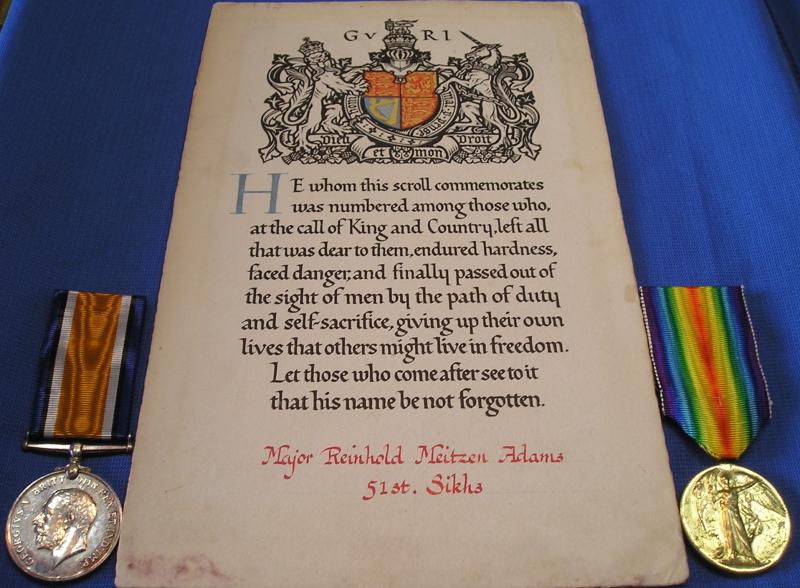 GV RI
Dieu et mon Droit
HE whom this scroll commemorates
was numbered among those who,
at the call of King and Country, left all
that was dear to them, endured hardness,
faced danger, and finally passed out of
the sight of men by the path of duty
and self-sacrifice, giving up their own
lives that others might live in freedom.
Let those who come after see to it
that his name be not forgotten.
Major Reinhold Meitzen Adams
51st. Sikhs
GEORGIVS V BRITT